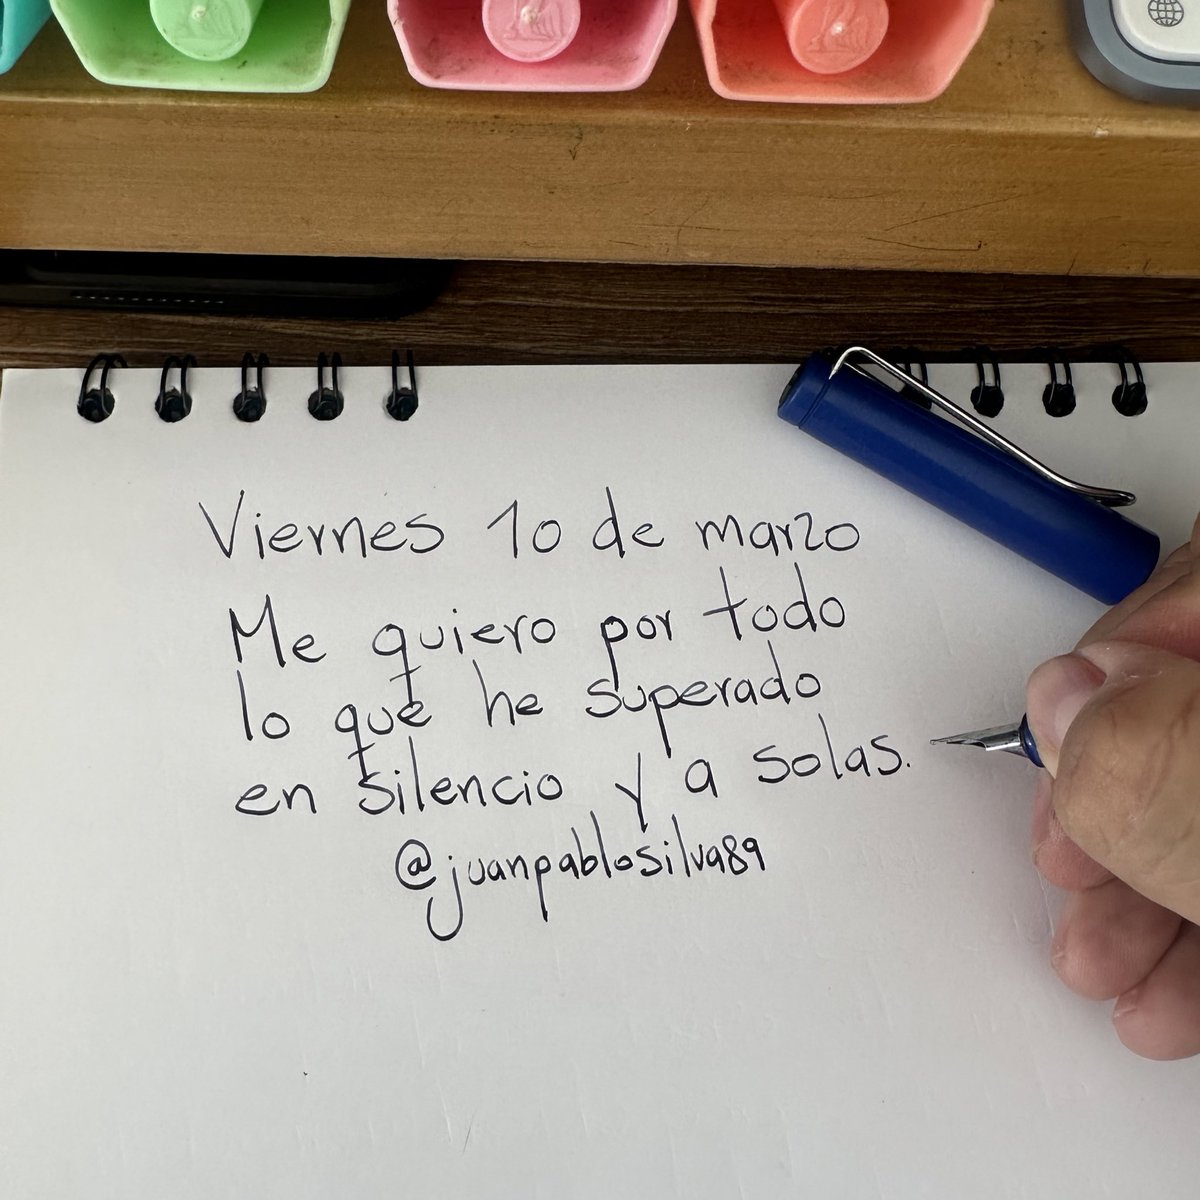 Viernes 10 de marzo
Me quiero por todo
lo que he superado
en silencio y a solas.
@juanpablosilva89